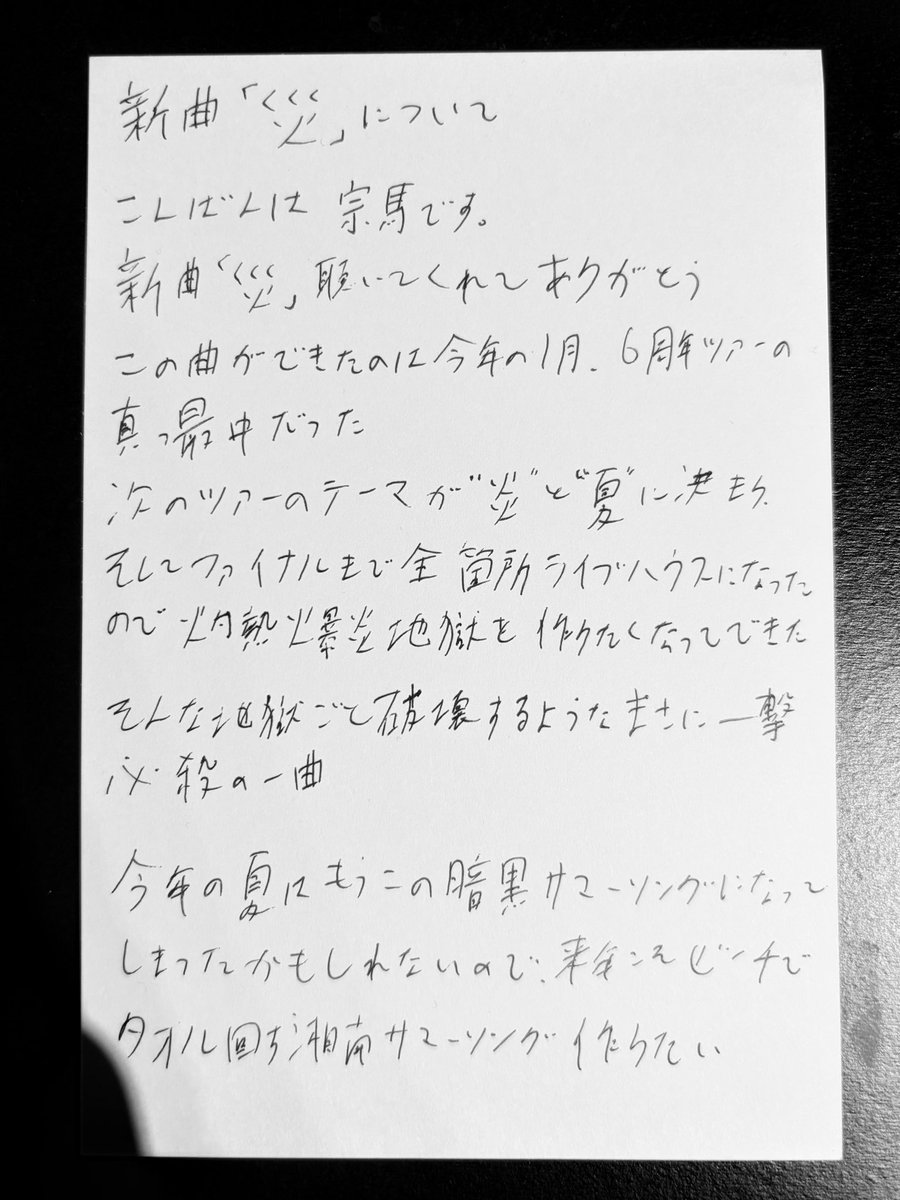 新曲「災」について
こんばんは 宗馬です。
新曲「災」聴いてくれてありがとう
この曲ができたのは今年の1月、6周年ツアーの
真っ最中だった
次のツアーのテーマが"炎"と"夏"に決まり、
そしてファイナルまで全箇所ライブハウスになった
ので灼熱爆炎地獄を作りたくなってできた
そんな地獄ごと破壊するようなまさに一撃
必殺の一曲
今年の夏はもうこの暗黒サマーソングになって
しまったかもしれないので、来年こそビーチで
タオル回す湘南サマーソング作りたい